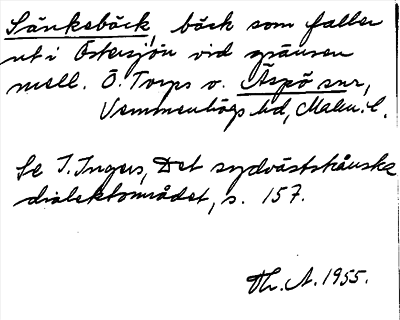 Sänkebäck, bäck som faller
ut i Östersjön vid gränsen
mell. Ö. Torps o. Äspö snr,
Vemmenhögs hd, Malm. l.
Se I. Ingers, Det sydvästskånska
dialektområdet, s. 157.
Th. A. 1955.